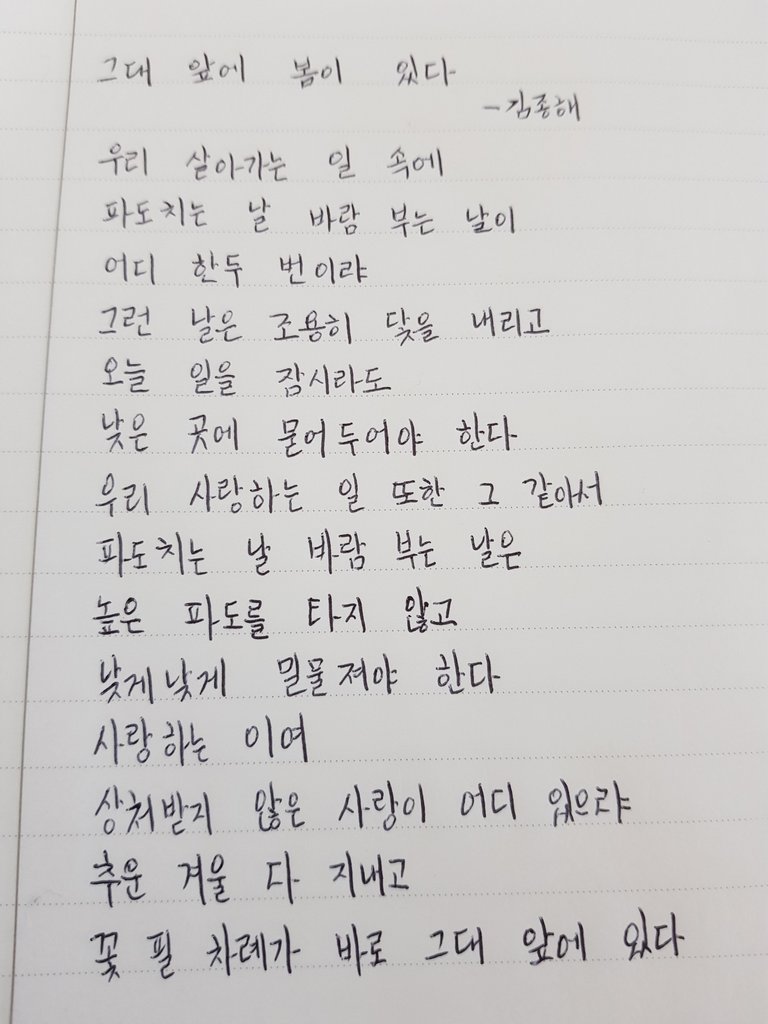 그대 앞에 봄이 있다
-김종해
우리 살아가는 일 속에
파도치는 날 바람 부는 날이
어디 한두 번이랴
그런 날은 조용히 닻을 내리고
오늘 일을 잠시라도
낮은 곳에 묻어두어야 한다
우리 사랑하는 일 또한 그 같아서
파도치는 날 바람 부는 날은
높은 파도를 타지 않고
낮게낮게 밀물져야 한다
사랑하는 이여
상처받지 않은 사랑이 어디 있으랴
추운 겨울 다 지내고
꽃 필 차례가 바로 그대 앞에 있다